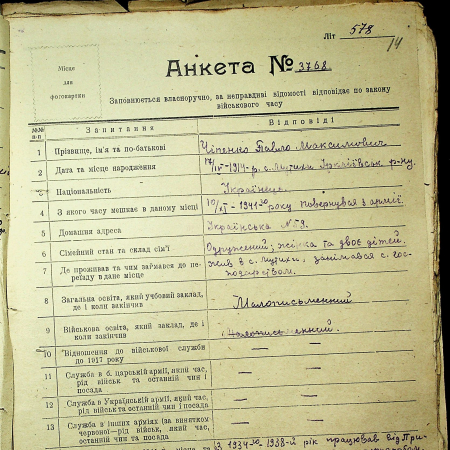 Літ 578
14
Місце
для
фотокартки
Анкета № 3768
Заповнюється власноручно, за неправдиві відомості відповідає по закону
військового часу
№№ п-п
Запитання
Відповіді
1 Прізвище, ім'я та по-батькові
Чіпенко Павло Максимович
2 Дата та місце народження
17/IV-1914 р. с. Мутиха Іркліївськ р-ну.
3 Національність
Українець.
4 З якого часу мешкає в даному місці
10/XI-1941 го року повернувся з армії.
5 Домашня адреса
Українська №59.
6 Сімейний стан та склад сім'ї
Одружений; жінка та двоє дітей.
7 Де проживав та чим займався до пе-
реїзду в дане місце
жив в с. Мутихи, займався с. гос-
подарством.
8 Загальна освіта, який учбовий заклад,
де і коли закінчив
Малописьменний
9 Військова освіта, який заклад, де і
коли закінчив
Малопись енний.
10 Відношення до військової служби
до 1917 року
— —
11 Служба в б. царській армії, який час,
рід військ та останній чин і
посада
— —
12 Служба в Українській армії, який час,
рід військ та останній чин і посада
— —
13 Служба в інших арміях (за винятком
червоної—рід військ, який час,
останній чин та посада
— —
з 1934 го 1938-й рік працював від При-